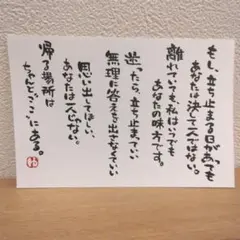 もし、立ち止まる日があっても
あなたは決して一人ではない。
離れていても、私はいつでも
あなたの味方です。
迷ったら、立ち止まっていい
無理に答えを出さなくていい
思い出してほしい、
あなたは一人じゃない。
帰る場所は
ちゃんと、ここにある。